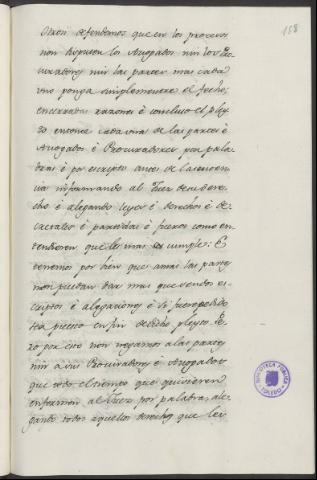 158
Otrosi defendemos que en los procesos
non disputen los Avogados nin los Pro-
curadores nin las partes mas cada
uno ponga simplemente el fecho,
encerradas razones é concluso el pley-
to entonce cada una de las partes é
Avogados é Procuradores por pala-
bras é por escripto antes de la senten-
cia informando al Juez de su dere-
cho é alegando leyes é derechos é de-
cretales é partidas é fueros como en-
tendieren que les mas cumple: E
tenemos por bien que amas las partes
non puedan dar mas que sendos es-
criptos é alegaciones é si fuere pedido
sea puesto en fin de dicho pleyto. Pe-
ro por esto non negamos a las partes
nin a sus Procuradores é Avogados
que todo el tiempo que quisieren
enformen al Juez por palabras, ale-
gando todos aquellos derechos que les
BIBLIOTECA PUBLICA
TOLEDO